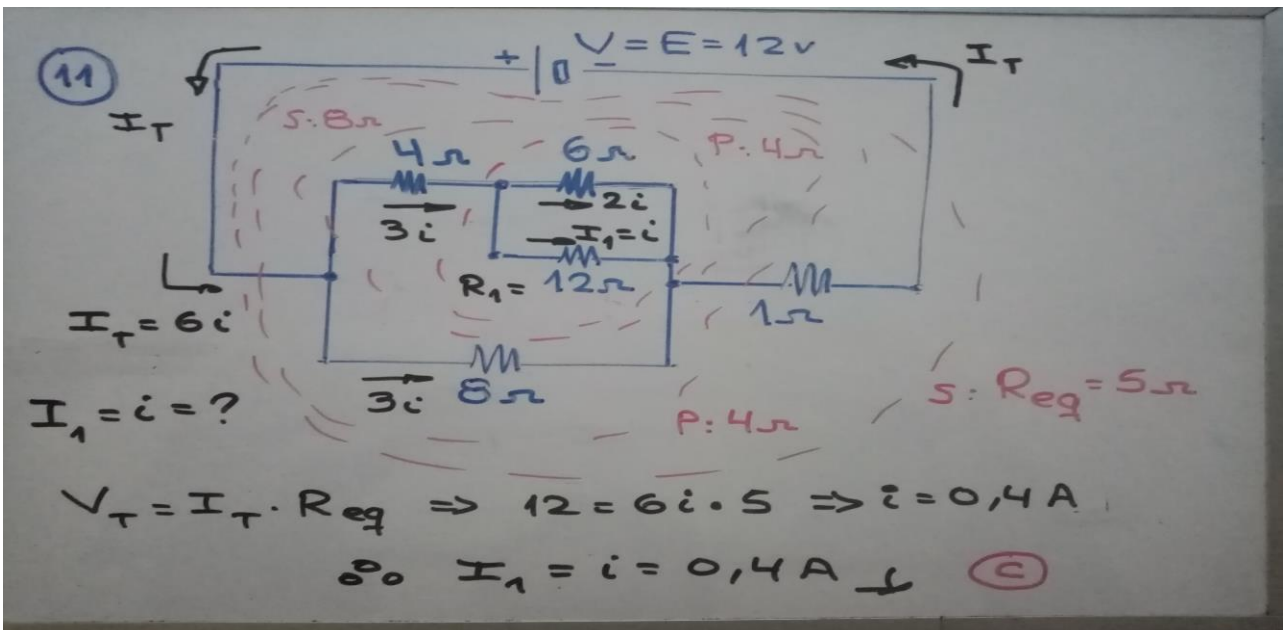 11
+ - V = E = 12v
I_T
I_T
S: 8Ω
4Ω 6Ω P: 4Ω
3i 2i
I₁ = i
R₁ = 12Ω
1Ω
I_T = 6i
3i 8Ω
P: 4Ω
S: Req = 5Ω
I₁ = i = ?
V_T = I_T . Req ⇒ 12 = 6i . 5 ⇒ i = 0,4 A
∴ I₁ = i = 0,4 A C